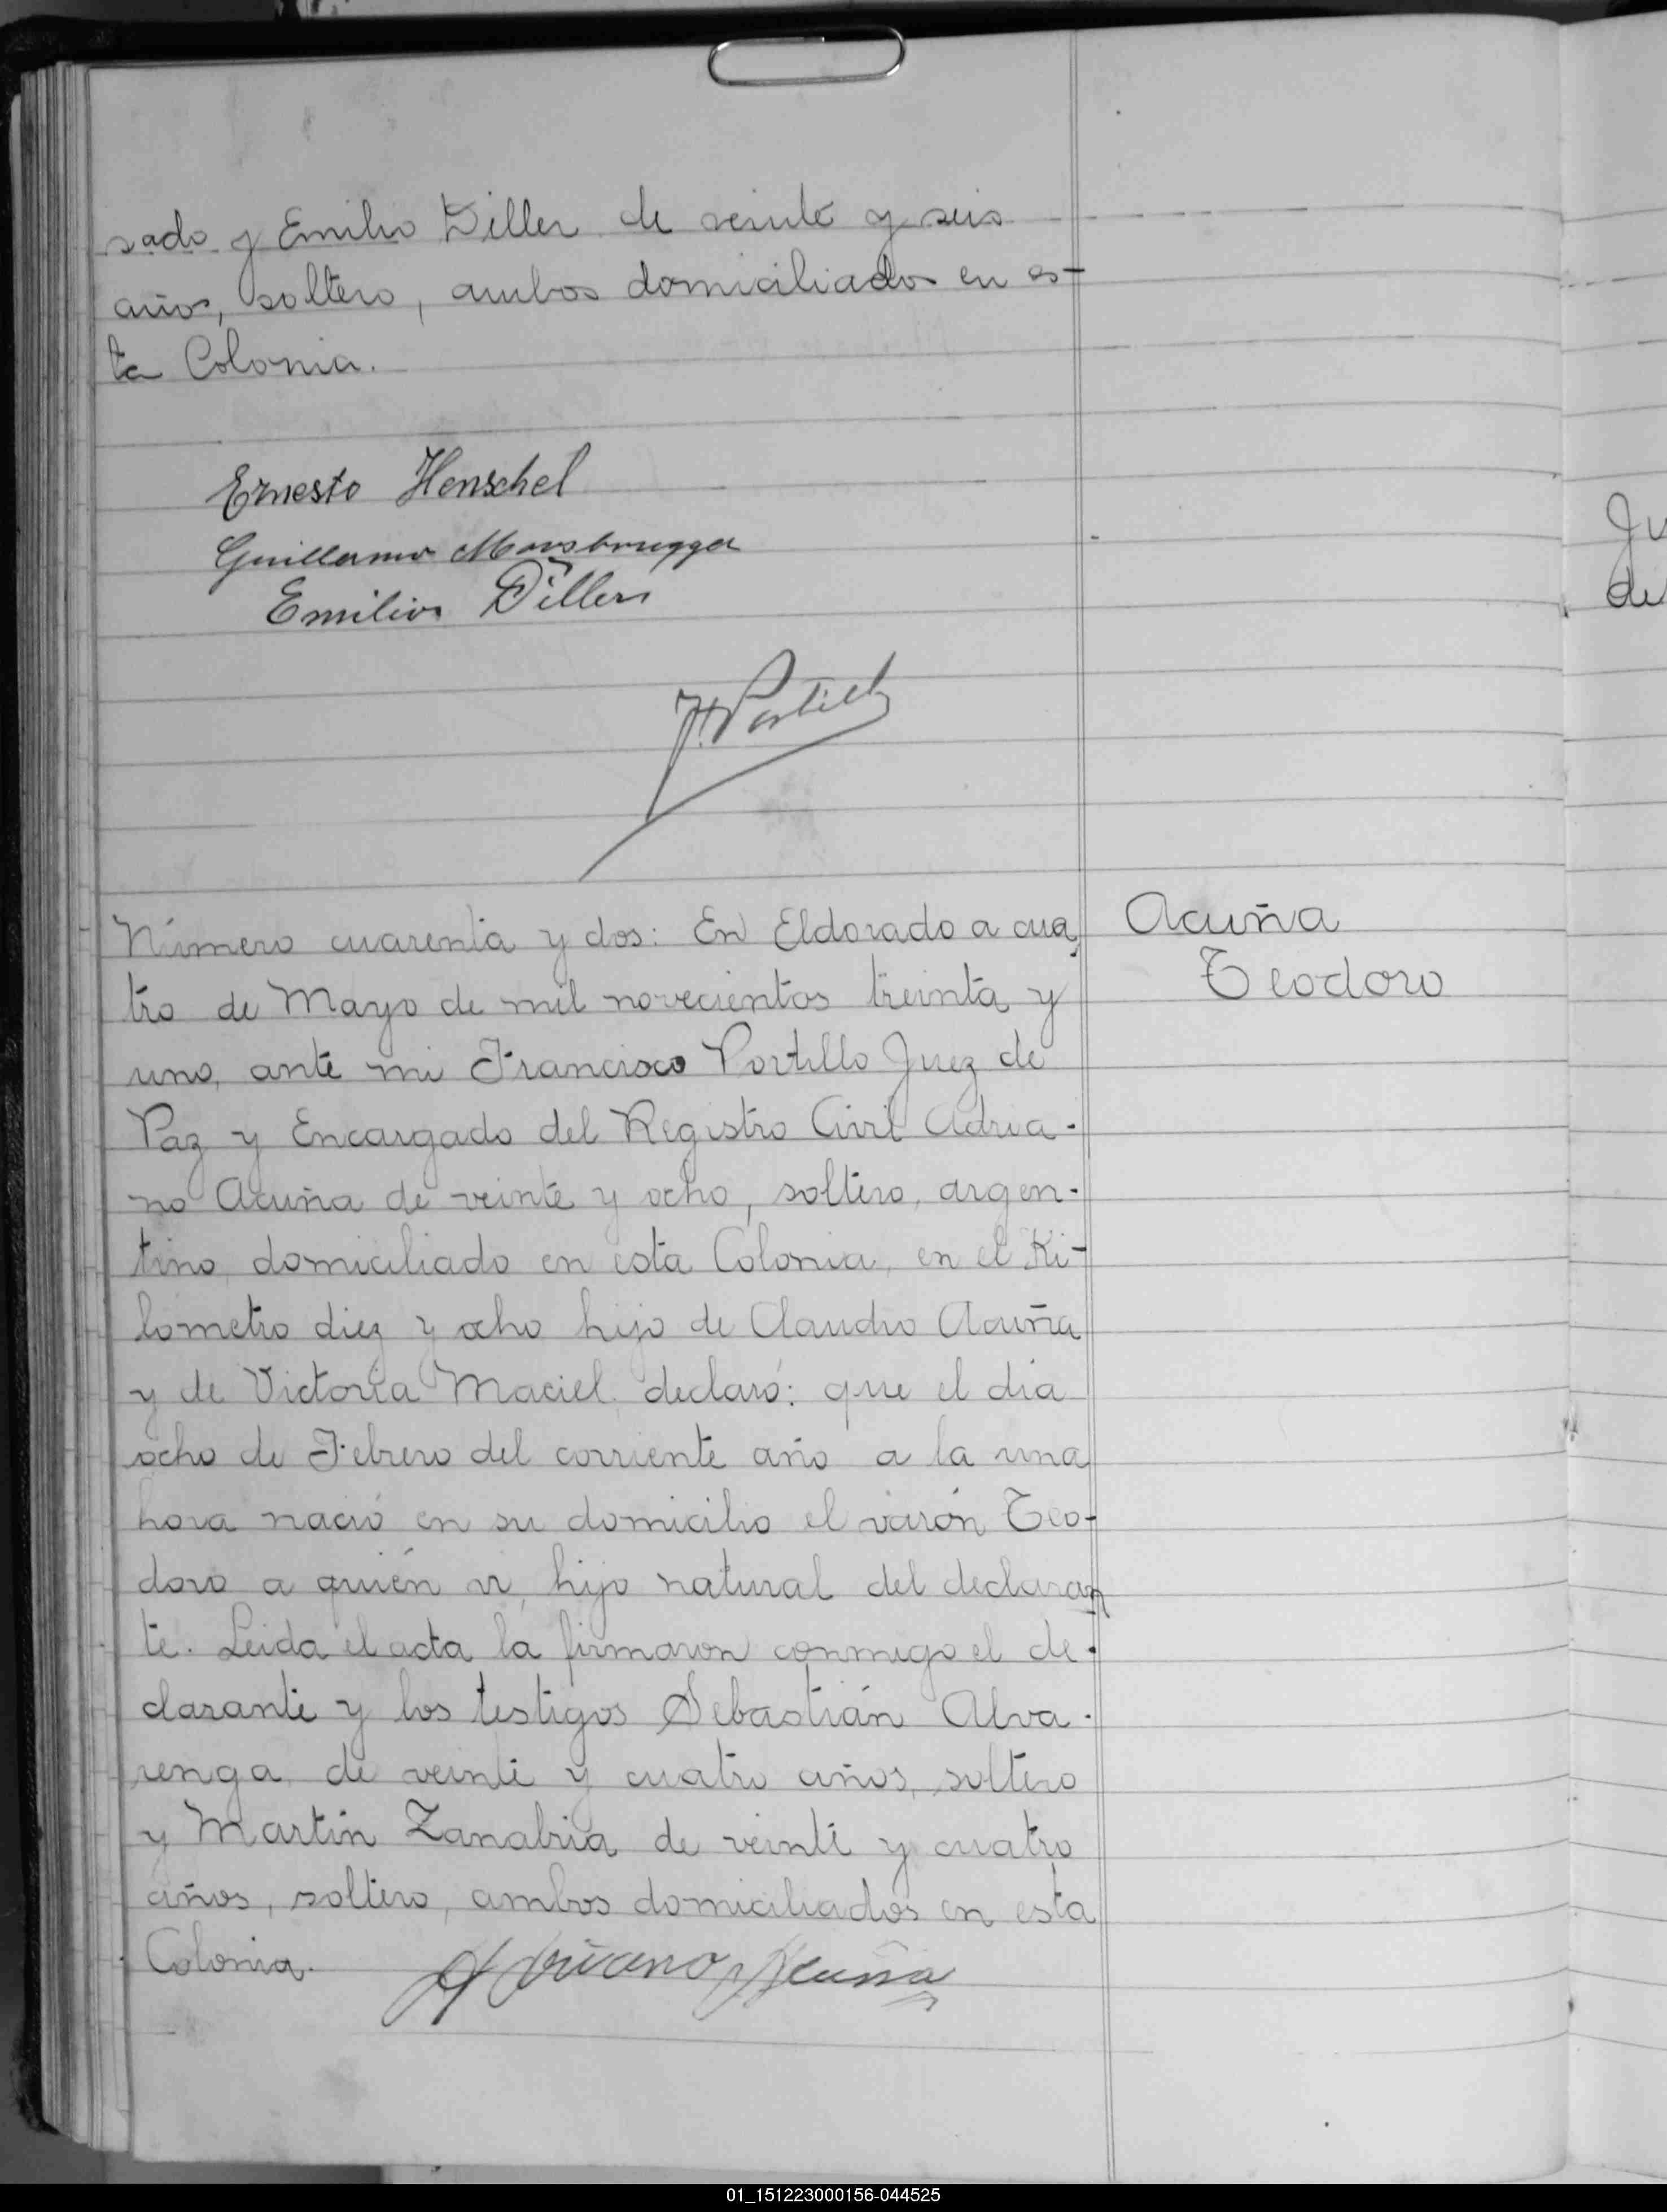 sado y Emilio Diller de veinte y seis
años, soltero, ambos domiciliados en es-
ta Colonia.
Ernesto Henschel
Guillermo Moosbrugger
Emilio Diller
F. Portillo
Número cuarenta y dos: En Eldorado a cua
tro de Mayo de mil novecientos treinta y
uno, ante mi Francisco Portillo Juez de
Paz y Encargado del Registro Civil Adria-
no Acuña de veinte y ocho, soltero, argen-
tino, domiciliado en esta Colonia, en el Ki-
lometro diez y ocho hijo de Claudio Acuña
y de Victoria Maciel declaró: que el día
ocho de Febrero del corriente año a la una
hora nació en su domicilio el varón Teo-
doro a quién vi, hijo natural del declaran
te. Leida el acta la firmaron conmigo el de-
clarante y los testigos Sebastián Alva-
renga de veinte y cuatro años, soltero
y Martín Zanabria de veinte y cuatro
años, soltero, ambos domiciliados en esta
Colonia.
Adriano Acuña
Acuña
Teodoro
Ju
de
01_151223000156-044525